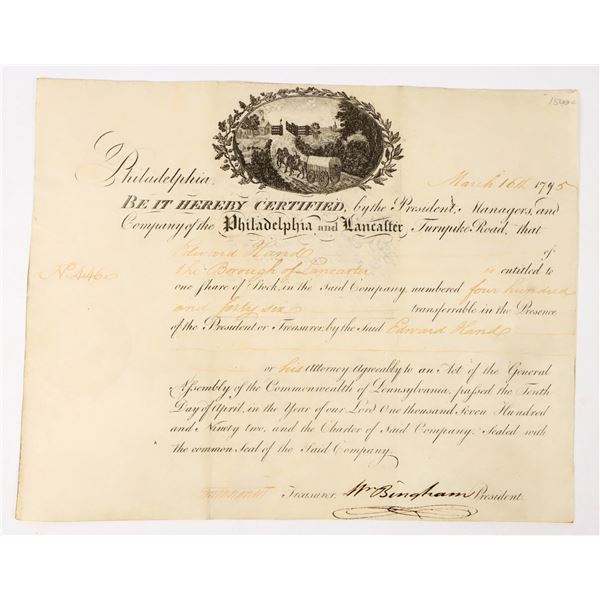 Philadelphia, March 16th 1795
BE IT HEREBY CERTIFIED, by the President, Managers, and
Company of the Philadelphia and Lancaster Turnpike Road, that
Edward Hand of
No. 446 the Borough of Lancaster is entitled to
one Share of Stock, in the Said Company, numbered four hundred
and forty six transferrable in the Presence
of the President or Treasurer, by the Said Edward Hand
or his Attorney Agreeably to an Act of the General
Assembly of the Commonwealth of Pennsylvania, passed the Tenth
Day of April, in the Year of our Lord One thousand, Seven Hundred
and Ninety two, and the Charter of Said Company. Sealed with
the common Seal of the Said Company.
Treasurer. Wm Bingham President.